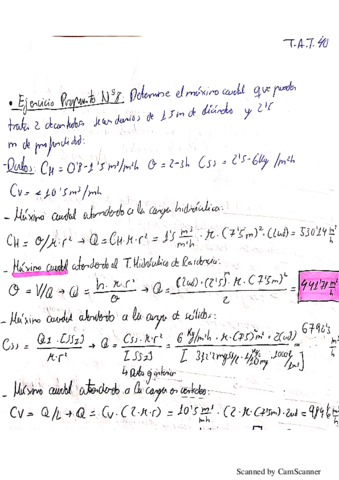 T.A.T. 40
• Ejercicio Propuesto Nº8: Determine el máximo caudal que pueden
tratar 2 decantadores secundarios de 15m de diámetro y 2'5
m de profundidad:
- Datos: CH = 0'8-1'5 m³/m²h θ = 2-3h CSS = 2'5-6 Kg/m²h
CV = < 10'5 m³/mh
- Máximo caudal atendiendo a la carga hidráulica:
CH = Q/π·r² → Q = CH·π·r² = 1'5 m³/m²h · π·(7'5m)²·(2ud) = 530'14 m³/h
- Máximo caudal atendiendo al T. Hidráulico de Residencia:
θ = V/Q → Q = h·π·r²/θ → Q = (2ud)·(2'5)·π·(7'5m)²/2 = 441'71 m³/h
- Máximo caudal atendiendo a la carga de sólidos:
CSS = Q·[SS]/π·r² → Q = CSS·π·r²/[SS] = 6 Kg/m²h · π·(7'5)²m²·2(ud)
m³/h
- Máximo caudal atendiendo a la carga en vertedero:
CV = Q/L → Q = CV·(2·π·r) = 10'5 m³/mh ·(2·π·7'5m)·2ud = 989'6 m³/h
Scanned by CamScanner